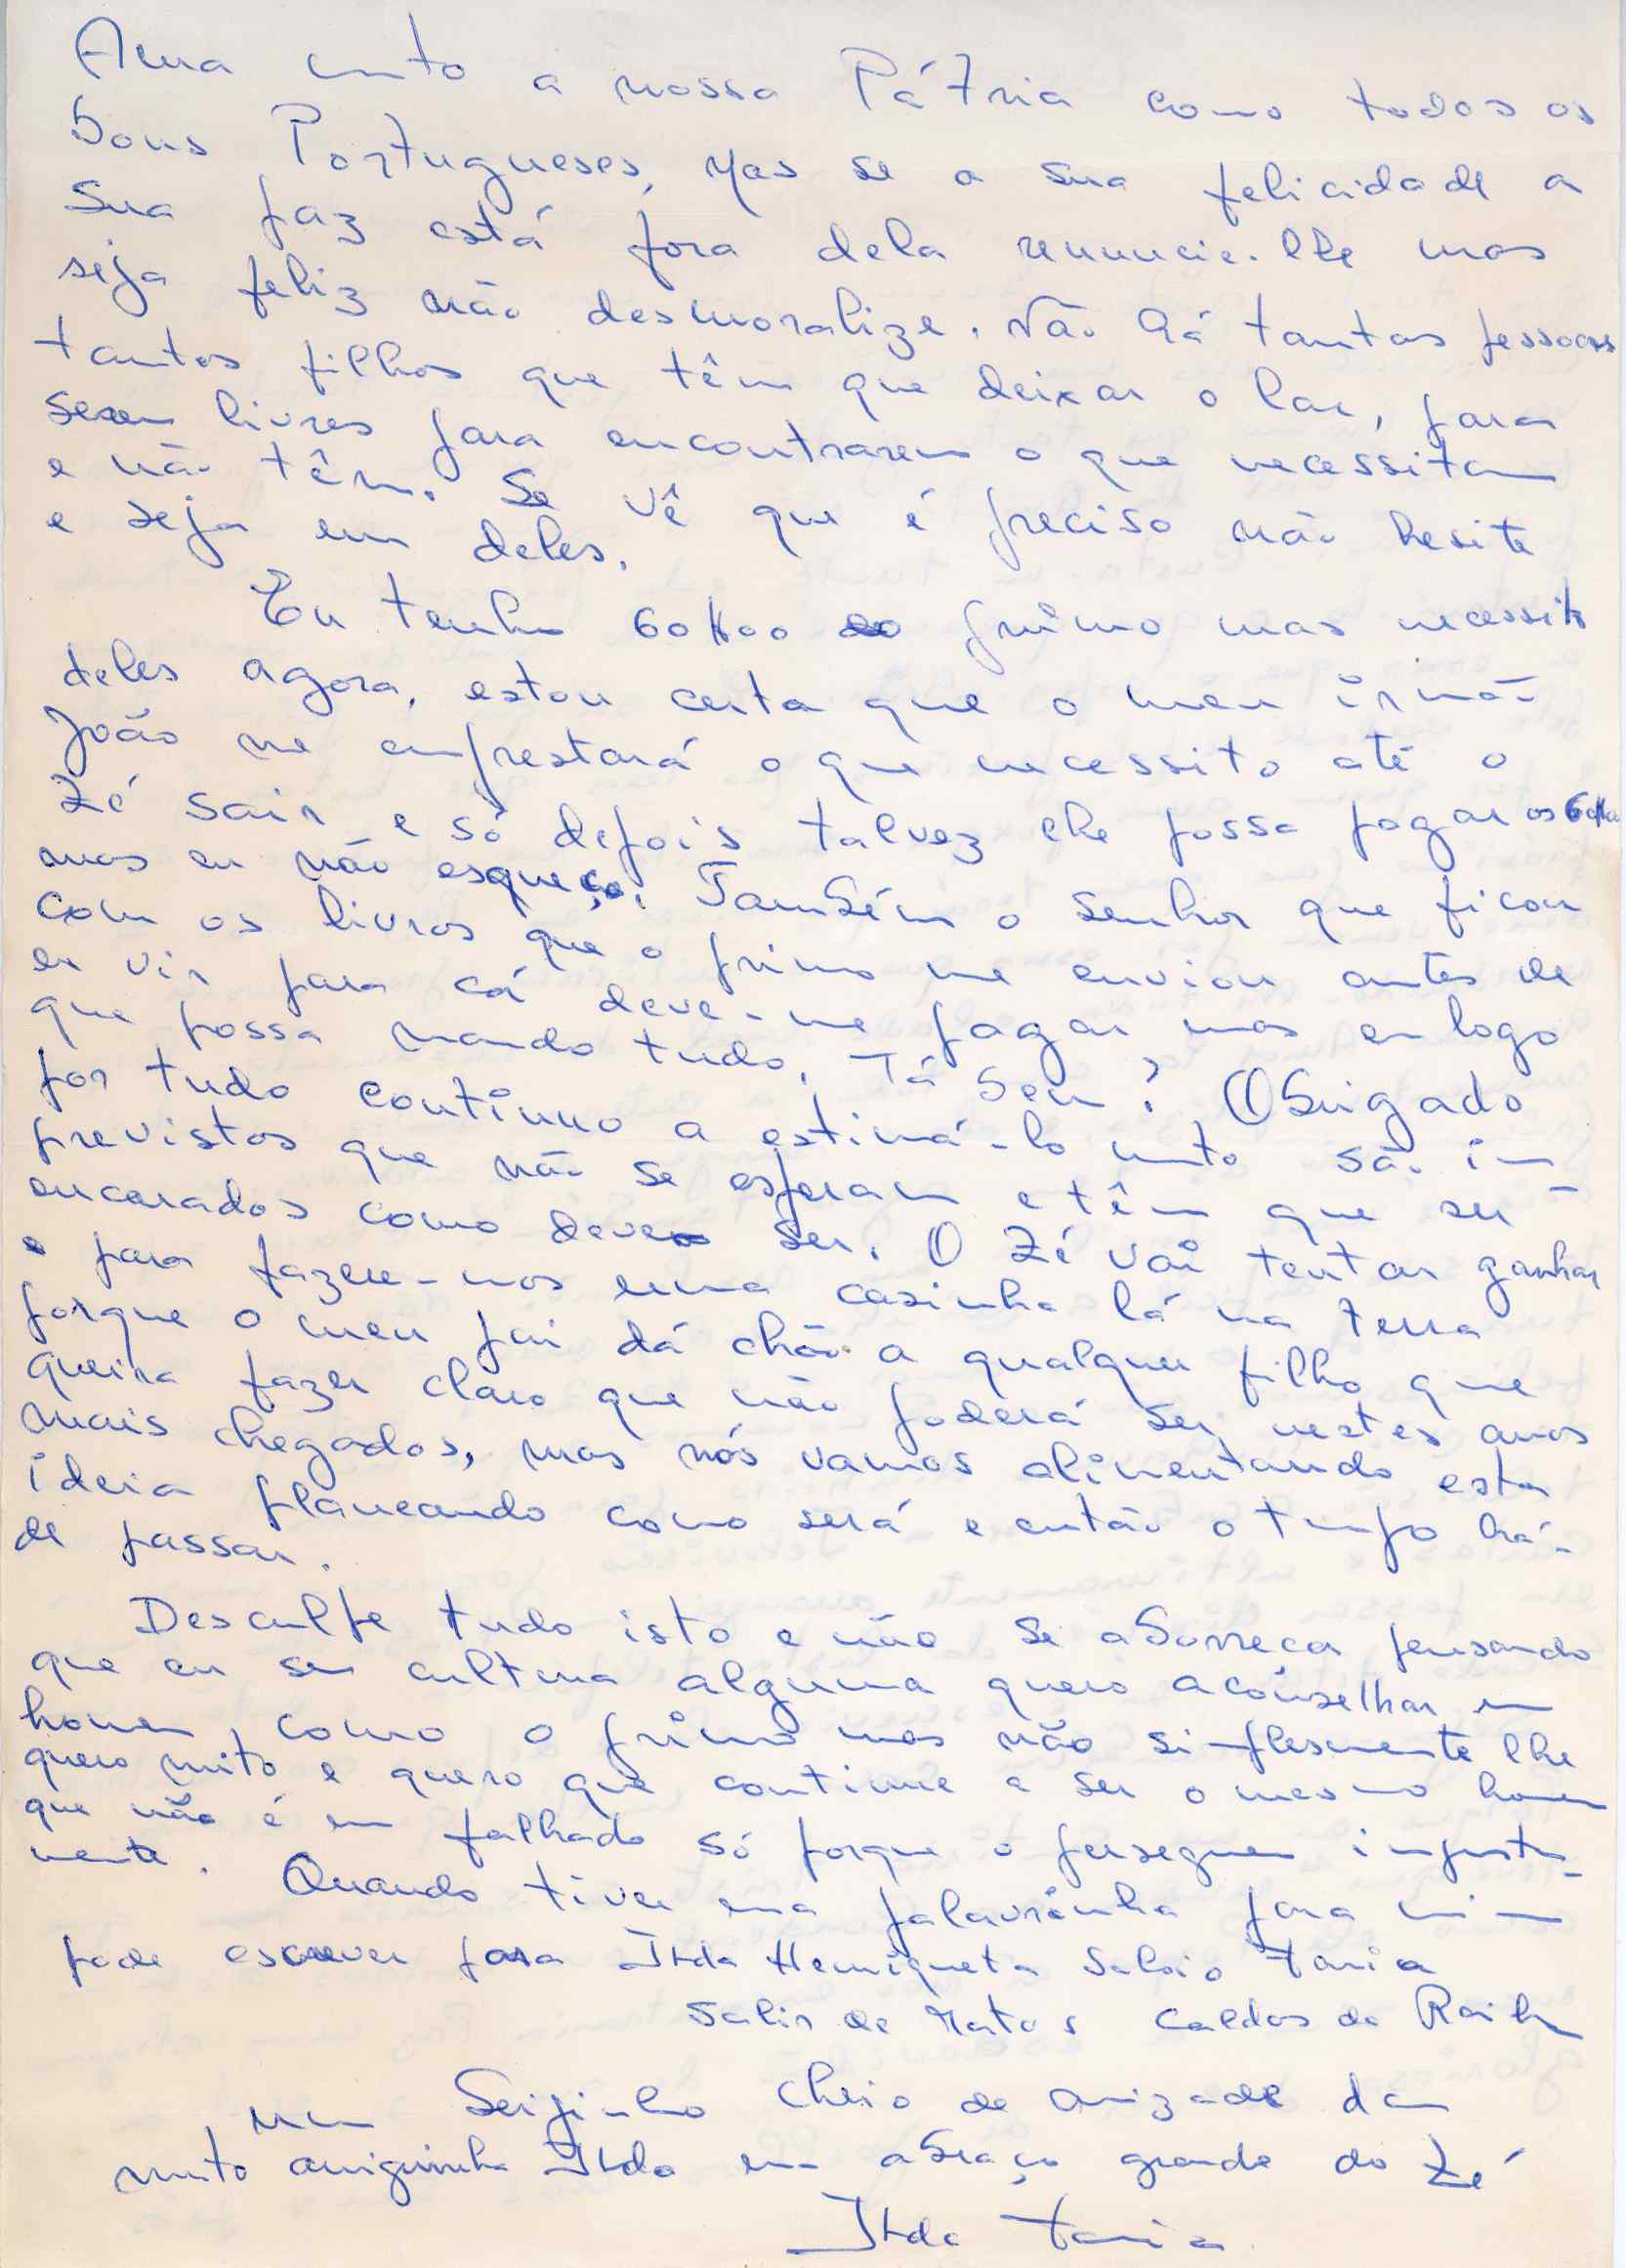 Ama muito a nossa Pátria como todos os
bons Portugueses, mas se a sua felicidade a
sua paz está fora dela renuncie-lhe mas
seja feliz não desmoralize. Não há tantas pessoas
tantos filhos que têm que deixar o lar, para
serem livres para encontrarem o que necessitam
e não têm. Se vê que é preciso não hesite
e seja um deles.
Eu tenho 60$00 do primo mas necessito
deles agora, estou certa que o meu irmão
João me emprestará o que necessito até o
Zé sair e só depois talvez lhe possa pagar os 60$00
mas eu não esqueço. Também o senhor que ficou
com os livros que o primo me enviou antes de
eu vir para cá deve-me pagar mas eu logo
que possa mando tudo. Tá bem? Obrigado
por tudo continuo a estimá-lo muito são im-
previstos que não se esperam e têm que ser
encarados como deve ser. O Zé vai tentar ganhar
para fazer-mos uma casinha lá na terra
porque o meu pai dá chão a qualquer filho que
queira fazer claro que não poderá ser nestes anos
mais chegados, mas nós vamos alimentando esta
ideia planeando como será e então o tempo há-
de passar.
Desculpe tudo isto e não se aborreça pensando
que eu sem cultura alguma quero aconselhar um
homem como o primo mas não simplesmente lhe
quero muito e quero que continue a ser o mesmo homem
que não é um falhado só porque o perseguem injusta-
mente. Quando tiver uma palavrinha para mim
pode escrever para Ilda Henriqueta Saloio Faria
Salir de Matos Caldas da Rainha
um beijinho cheio de amizade da
muito amiguinha Ilda um abraço grande do Zé
Ilda Faria